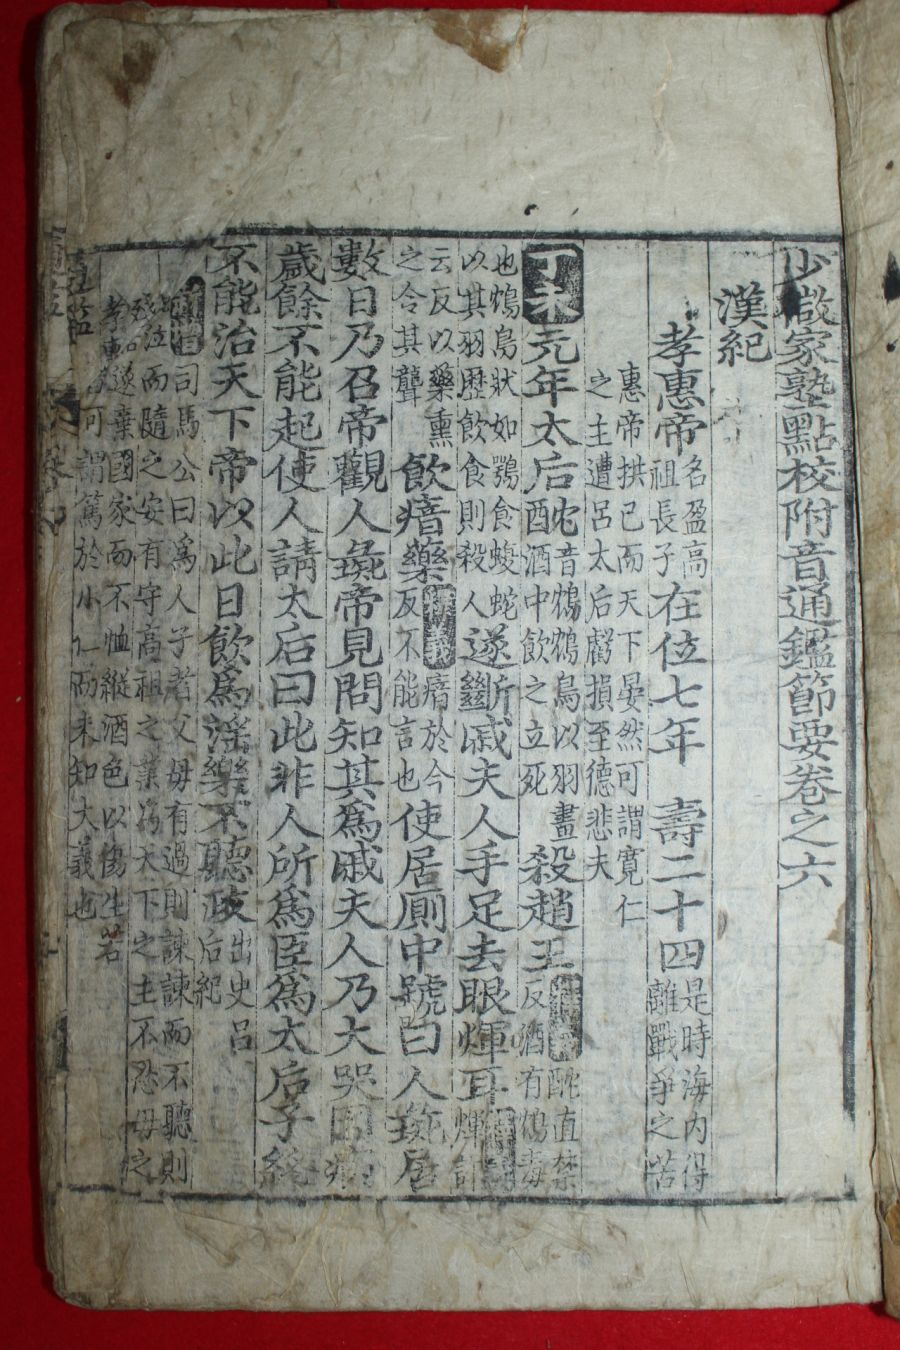 少微家塾點校附音通鑑節要卷之六
漢紀
孝惠帝名盈高祖長子在位七年 壽二十四是時海內得離戰爭之苦
惠帝拱己而天下晏然可謂寬仁之主遭呂太后虧損至德悲夫
丁未元年太后酖音鴆鴆鳥以羽畫酒中飮之立死殺趙王酖直禁反酒有鴆毒
也鴆鳥狀如鶚食蝮蛇以其羽歷飮食則殺人遂斷戚夫人手足去眼煇耳煇
云反以藥熏之令其聾飮瘖藥瘖於今反不能言也使居厠中號曰人彘居
數日乃召帝觀人彘帝見問知其爲戚夫人乃大哭因病
歲餘不能起使人請太后曰此非人所爲臣爲太后子終
不能治天下帝以此日飮爲淫樂不聽政出史呂后紀
司馬公曰爲人子者父母有過則諫諫而不聽則
泣而隨之安有守高祖之業爲天下之主不忍母之
殘酷遂棄國家而不恤縱酒色以傷生若
孝惠者可謂篤於小仁而未知大義也